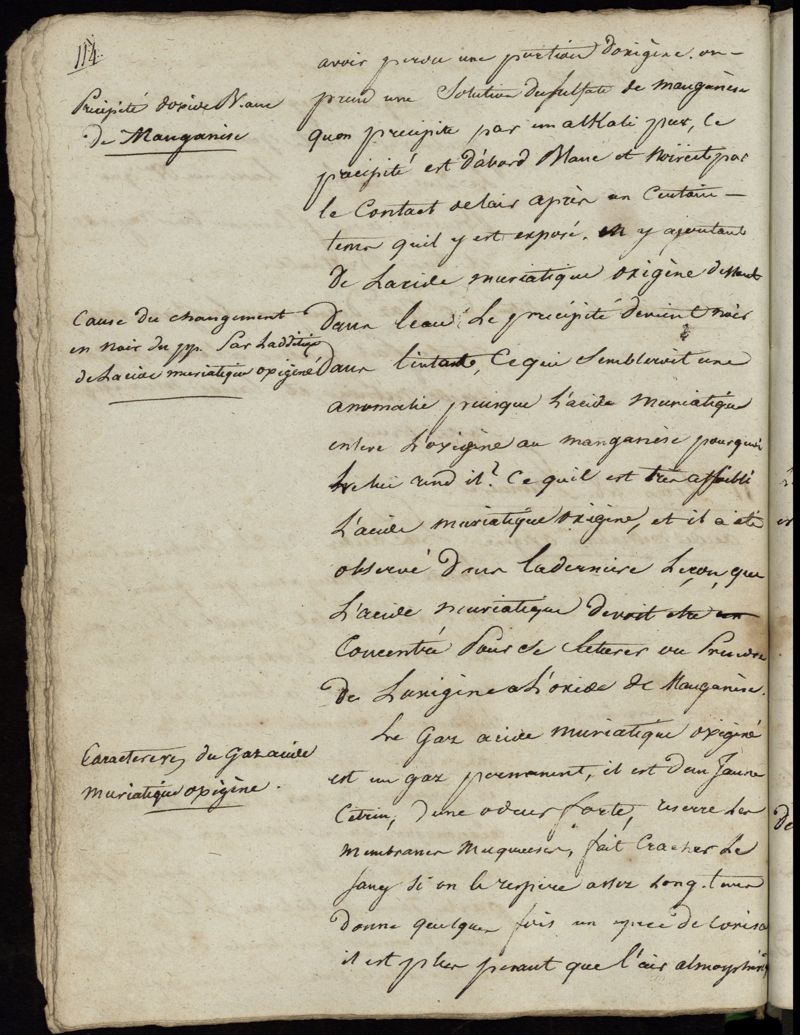 114
avoir perdu une portion d'oxigène. on
Précipité d'oxide Blanc
de Manganèse
prend une Solution du sulfate de manganèse
quon precipite par un alKali pur, le
précipité est d'abord Blanc et Noircit par
le Contact de lair après un Certain
tems quil y est exposé. en y ajoutant
de Lacide muriatique oxigène
Cause du changement
en noir du pp. Par Laddition
de Lacide muriatique oxigène
Dans leau, Le précipité devient noir
Dans l'instant, Ce qui Sembleroit une
anomalie puisque L'acide muriatique
enleve L'oxigène au manganèse pourquoi
Le lui rend il? Ce quil est très affoibli
L'acide muriatique oxigène, et il a été
observé Dans laderniere Leçon, que
L'acide muriatique devoit etre
Concentré Pour Se
de Loxigène a L'oxide de Manganèse.
Caracteres du Gaz acide
muriatique oxigène.
Le Gaz acide muriatique oxigéné
est un gaz permanent, il est d'un Jaune
Citrin, d'une odeur forte, reserre Les
Membranes Muqueuses, fait Cracher Le
Sang Si on le respire assez Long-tems
donne quelques fois un espece de
il est plus pesant que l'air atmosphériq